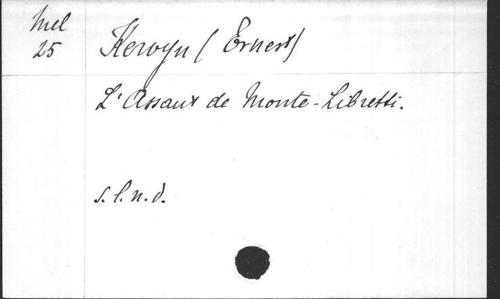 Mel
25
Kervyn (Ernest)
L'Assaut de Monte-Libretti.
s.l.n.d.